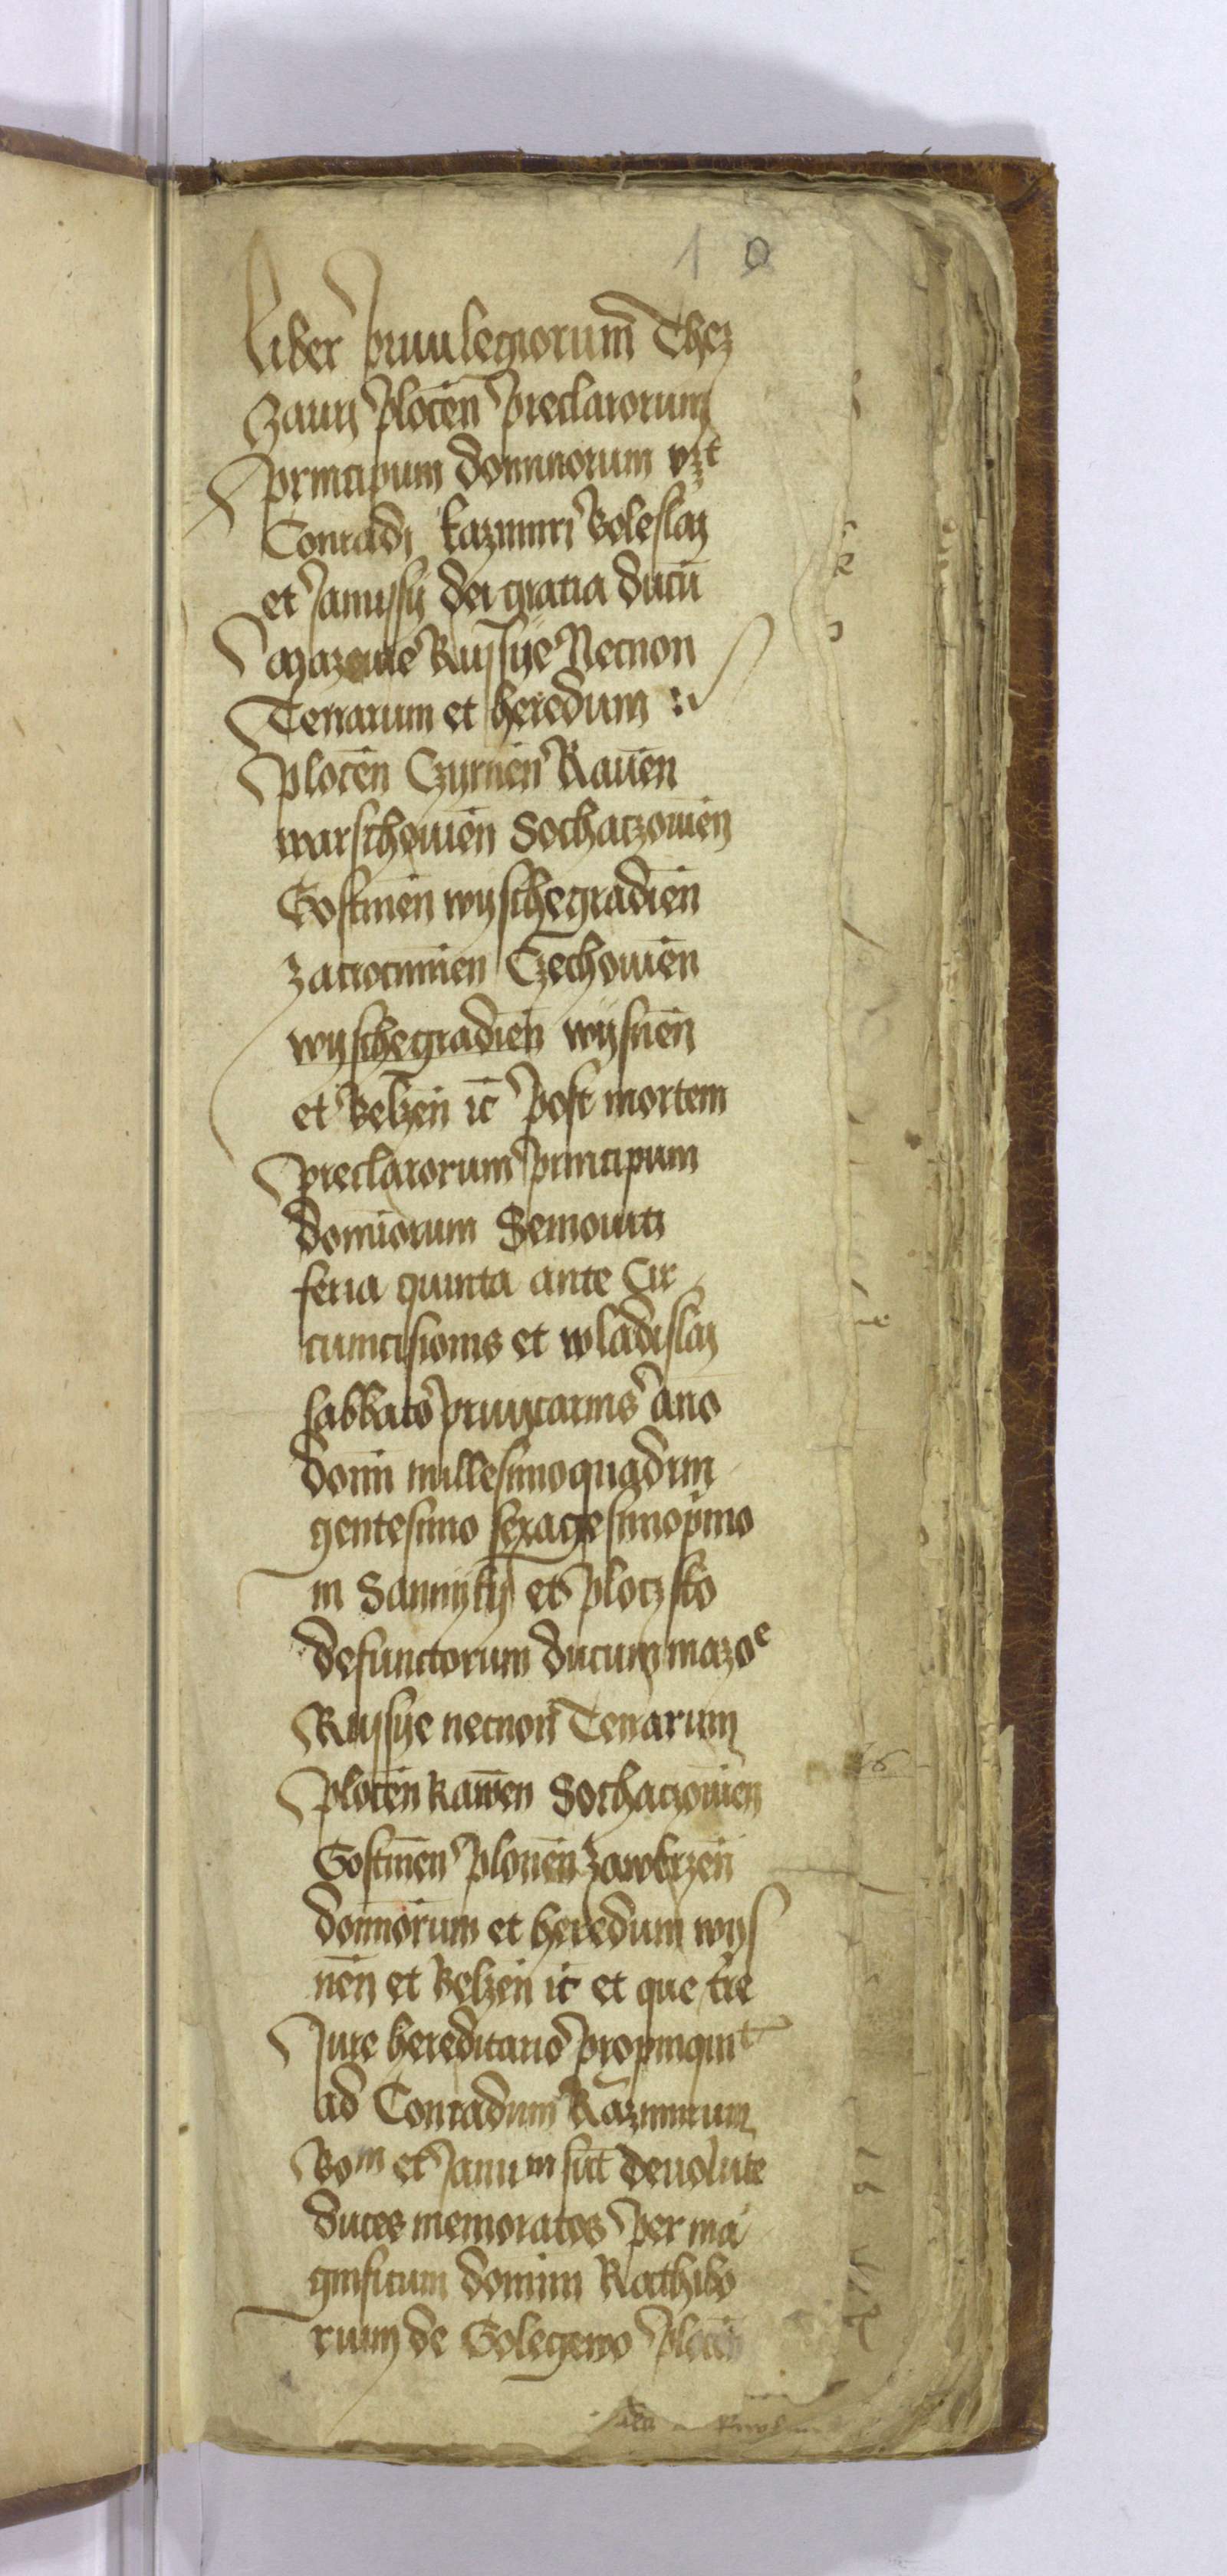 10
Liber priuilegiorum Thez
zauri plocen̄ preclarorum
principum dominorum vzt
Conradi kazimiri Boleslai
et Janussij dei gratia ducū
Mazouie Russye Necnon
Terrarum et heredum
plocen̄ Czyrnen̄ Rauen̄
warschouien̄ Sochaczouien̄
Gostinen̄ wyschegradien̄
zacrocimien̄ Czechouien̄
wyschegradien̄ wysnen̄
et Belzen̄ ic̄ post mortem
preclarorum principum
domīorum Semouiti
feria quinta ante Cir
cumcisionis et wladislai
sabbato priuicarnis Ano
domī millesimoquadrin
gentesimo sexagesimop̄mo
in Sannyky et ploczsko
defunctorum ducum mazoe
Russye necnon Terrarum
plocen̄ Rawen̄ Sochaczouien̄
Gostinen̄ plonen̄ zawkrzen̄
domīorum et heredum wys
nen̄ et Belzen̄ ic̄ et que tr̄e
Jure hereditario propinquit
ad Conradum kazimirum
Bom et Janum sūt deuolute
duces memoratos per ma
gnificum dominū Rathibo
rium de Golegewo plocen̄